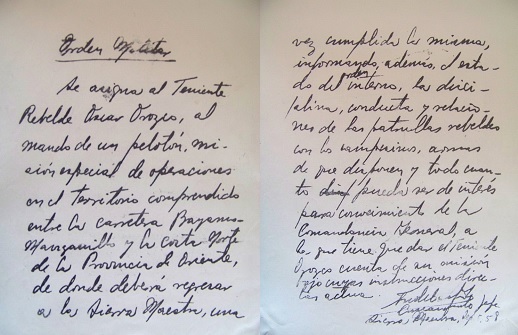 Orden Militar
Se asigna al Teniente
Rebelde Oscar Orozco, al
mando de un pelotón, mi-
sión especial de operaciones
en el territorio comprendido
entre la carretera Bayamo-
Manzanillo y la costa Norte
de la Provincia de Oriente,
de donde deberá regresar
a la Sierra Maestra, una
vez cumplida la misma,
informando, además, el esta-
do del orden interno, la disci-
plina, conducta y relacio-
nes de las patrullas rebeldes
con los campesinos, armas
de que disponen y todo cuan-
to pueda ser de interés
para conocimiento de la
Comandancia General, a
la que tiene que dar el teniente
Orozco cuenta de su misión
bajo cuyas instrucciones direc-
tas actua.
Fidel Castro
Comandante Jefe
Sierra Maestra, 58